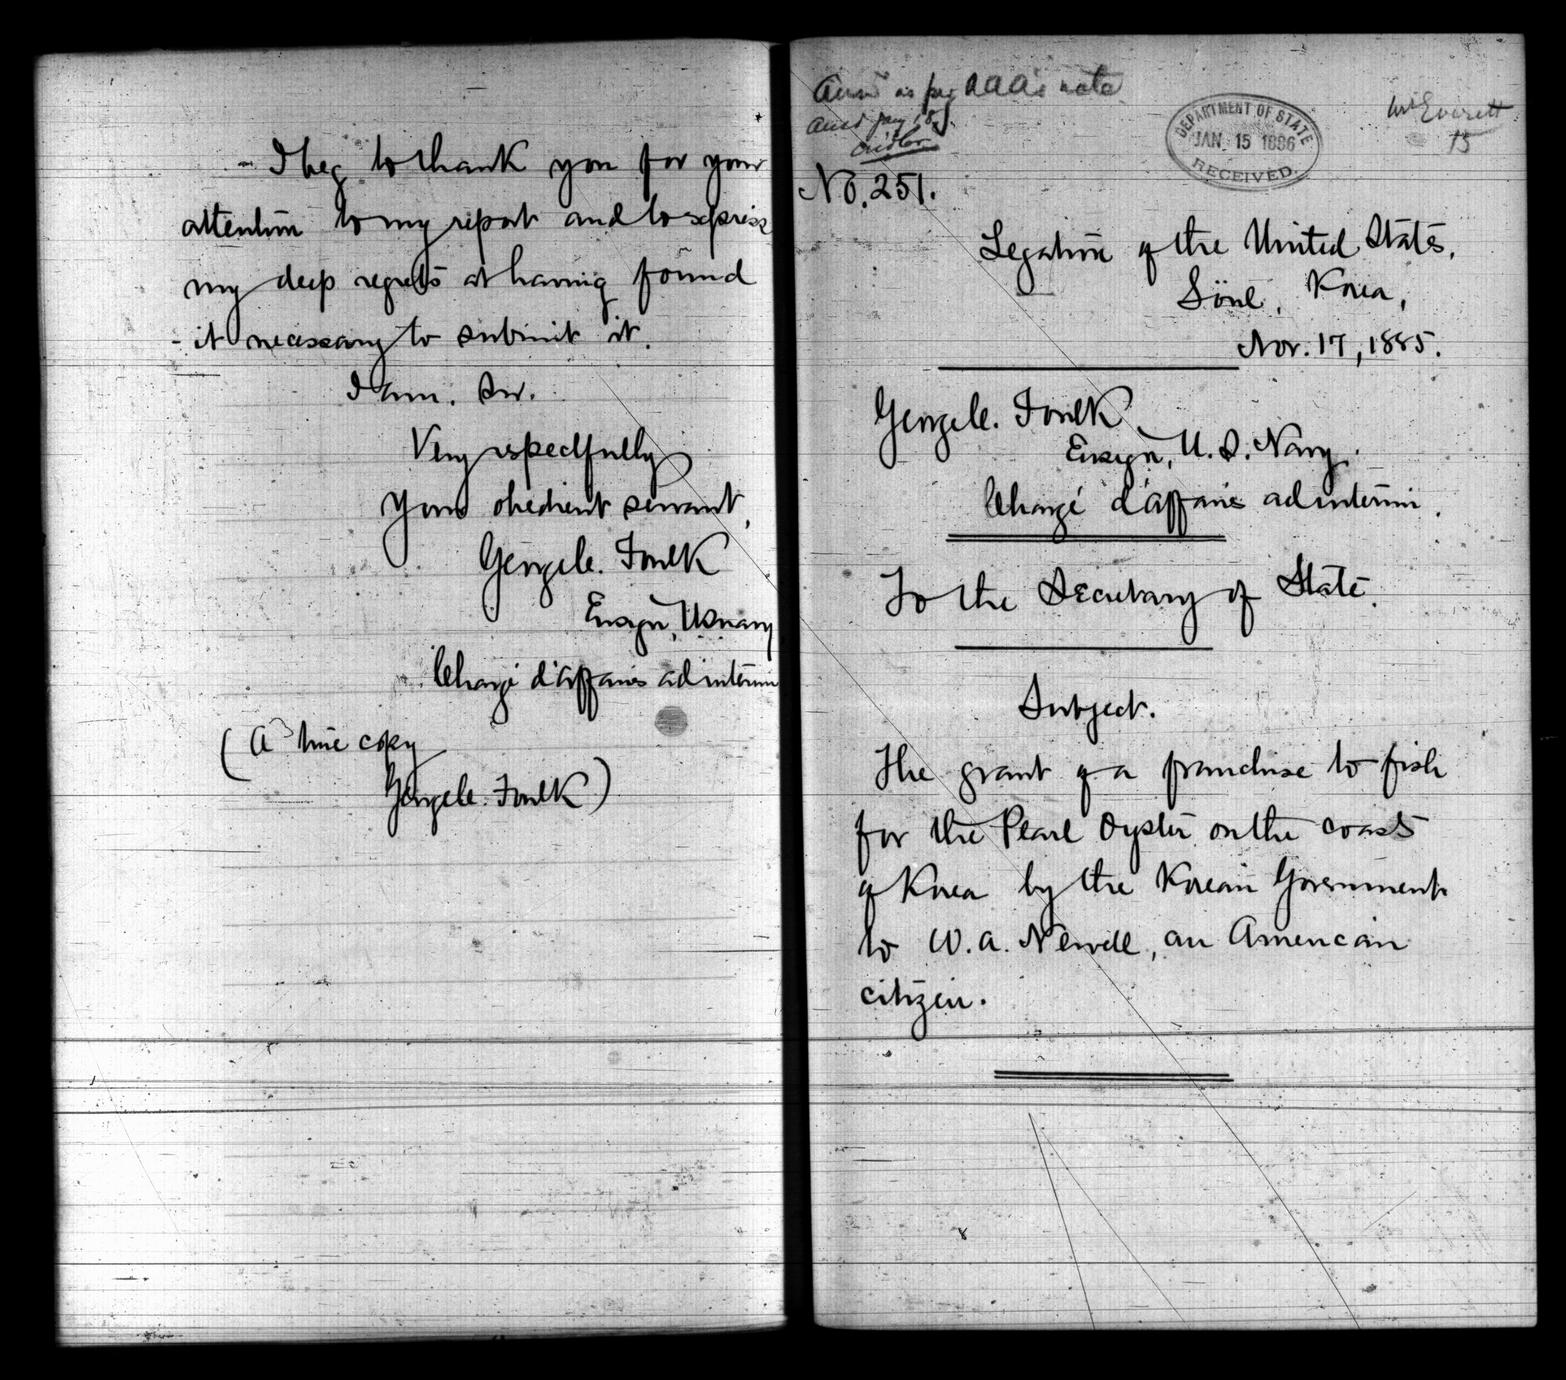 I beg to thank you for your
attention to my report and to express
my deep regrets at having found
it necessary to submit it.
I am, Sir,
Very respectfully
Your obedient servant,
George C. Foulk
Ensign, U.S. Navy
Chargé d'affaires ad interim
(A true copy
George C. Foulk)
as per AAA's note
Mr Everett
15
DEPARTMENT OF STATE
JAN 15 1886
RECEIVED
No. 251.
Legation of the United States,
Söul, Korea,
Nov. 17, 1885.
George C. Foulk
Ensign, U.S. Navy.
Chargé d'affaires ad interim.
To the Secretary of State.
Subject.
The grant of a franchise to fish
for the Pearl Oyster on the coasts
of Korea by the Korean Government
to W. A. Newell, an American
citizen.